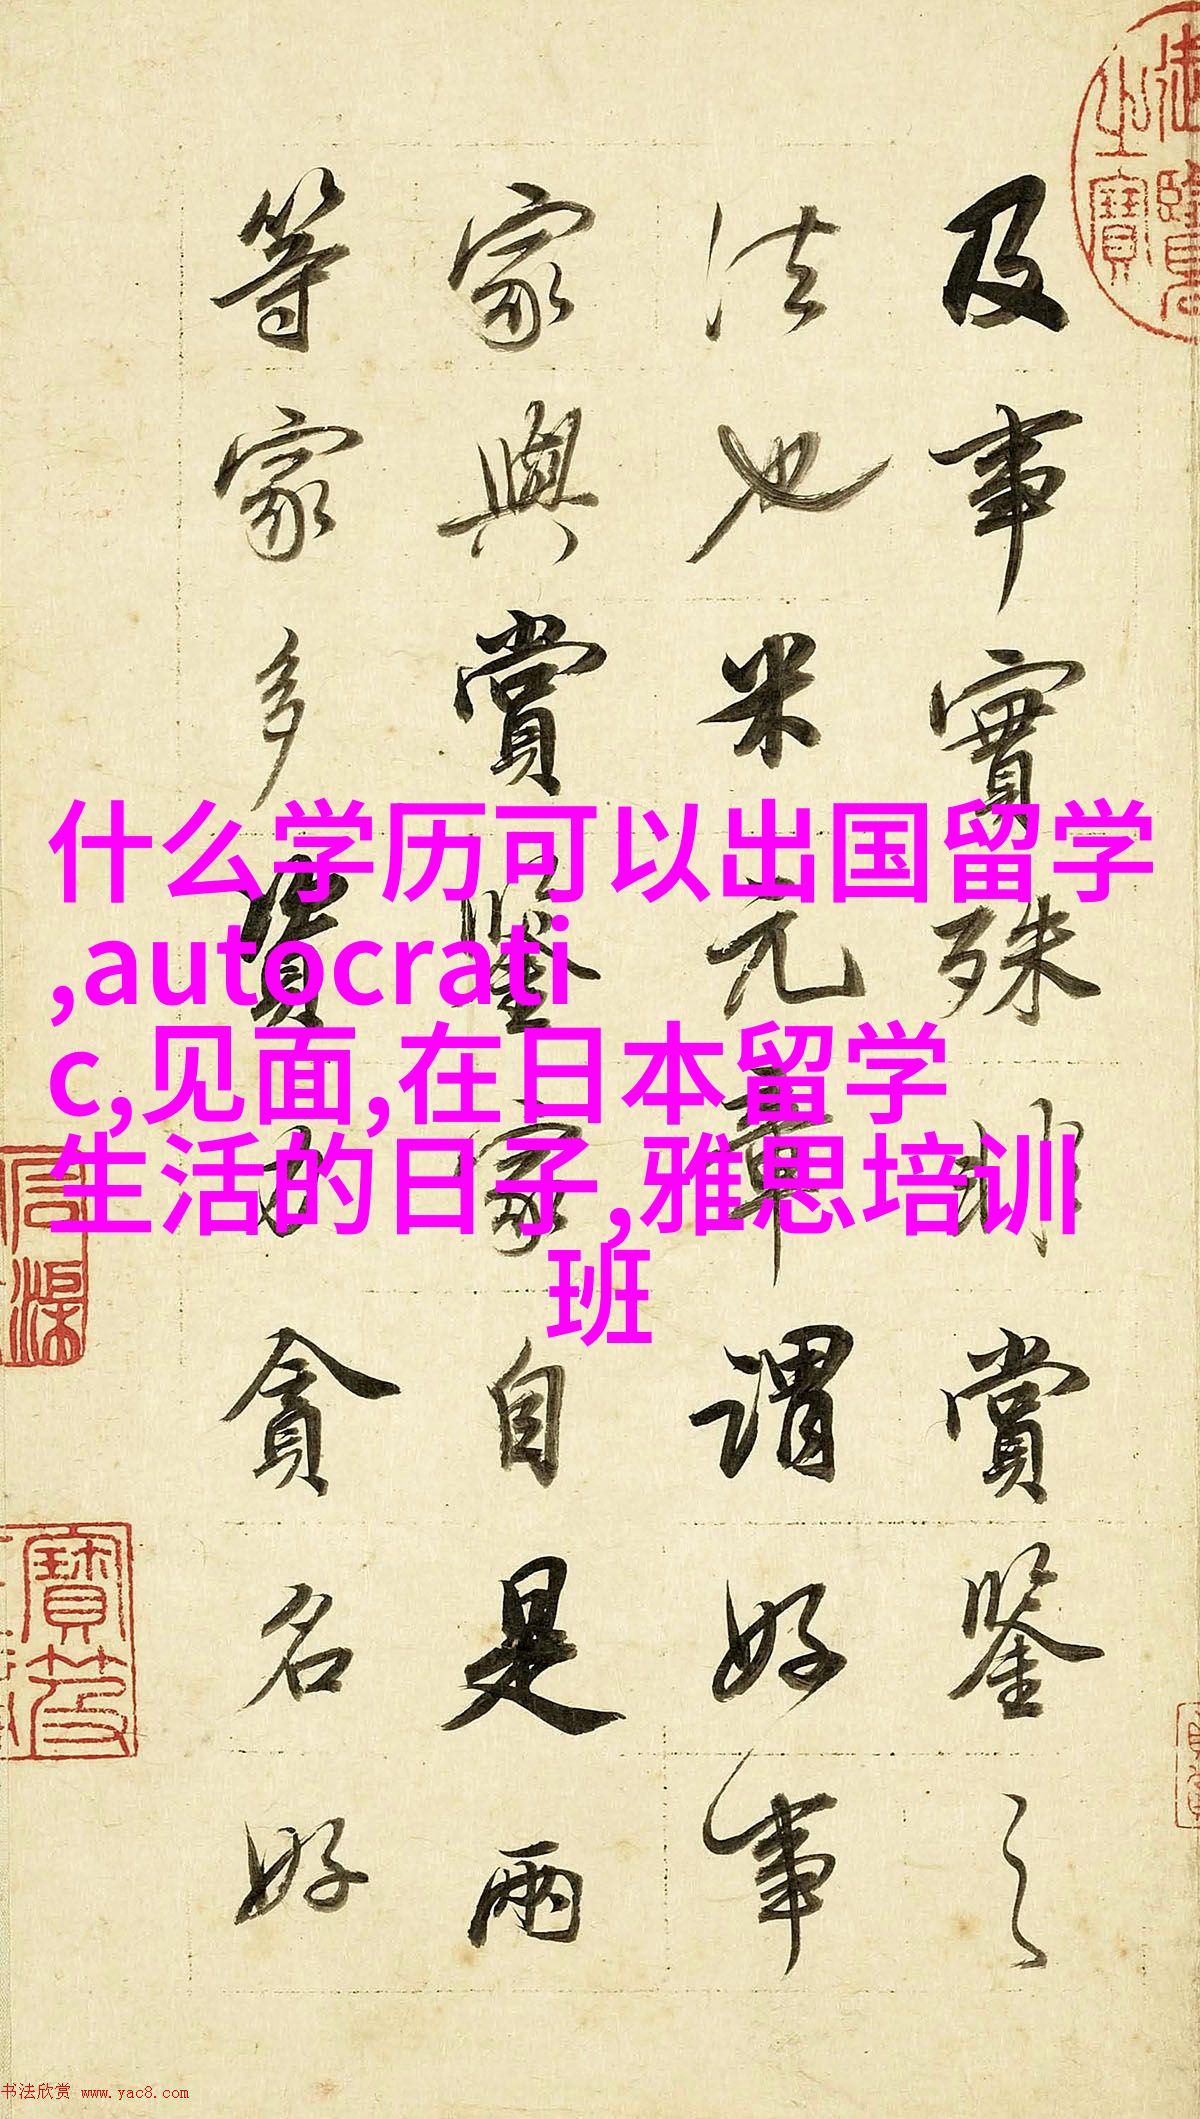 及事實殊非賞鑒之
法也米元章謂好事
家與賞鑒家自是兩
等家多資力貪名好
什么学历可以出国留学
,autocrati
c,见面,在日本留学
生活的日子,雅思培训
班
御覽之寶
书法欣赏 www.yac8.com